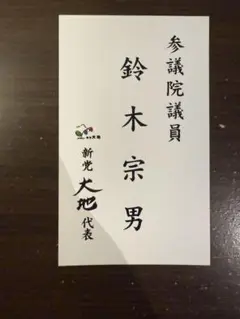 参議院議員
鈴木宗男
新党大地代表